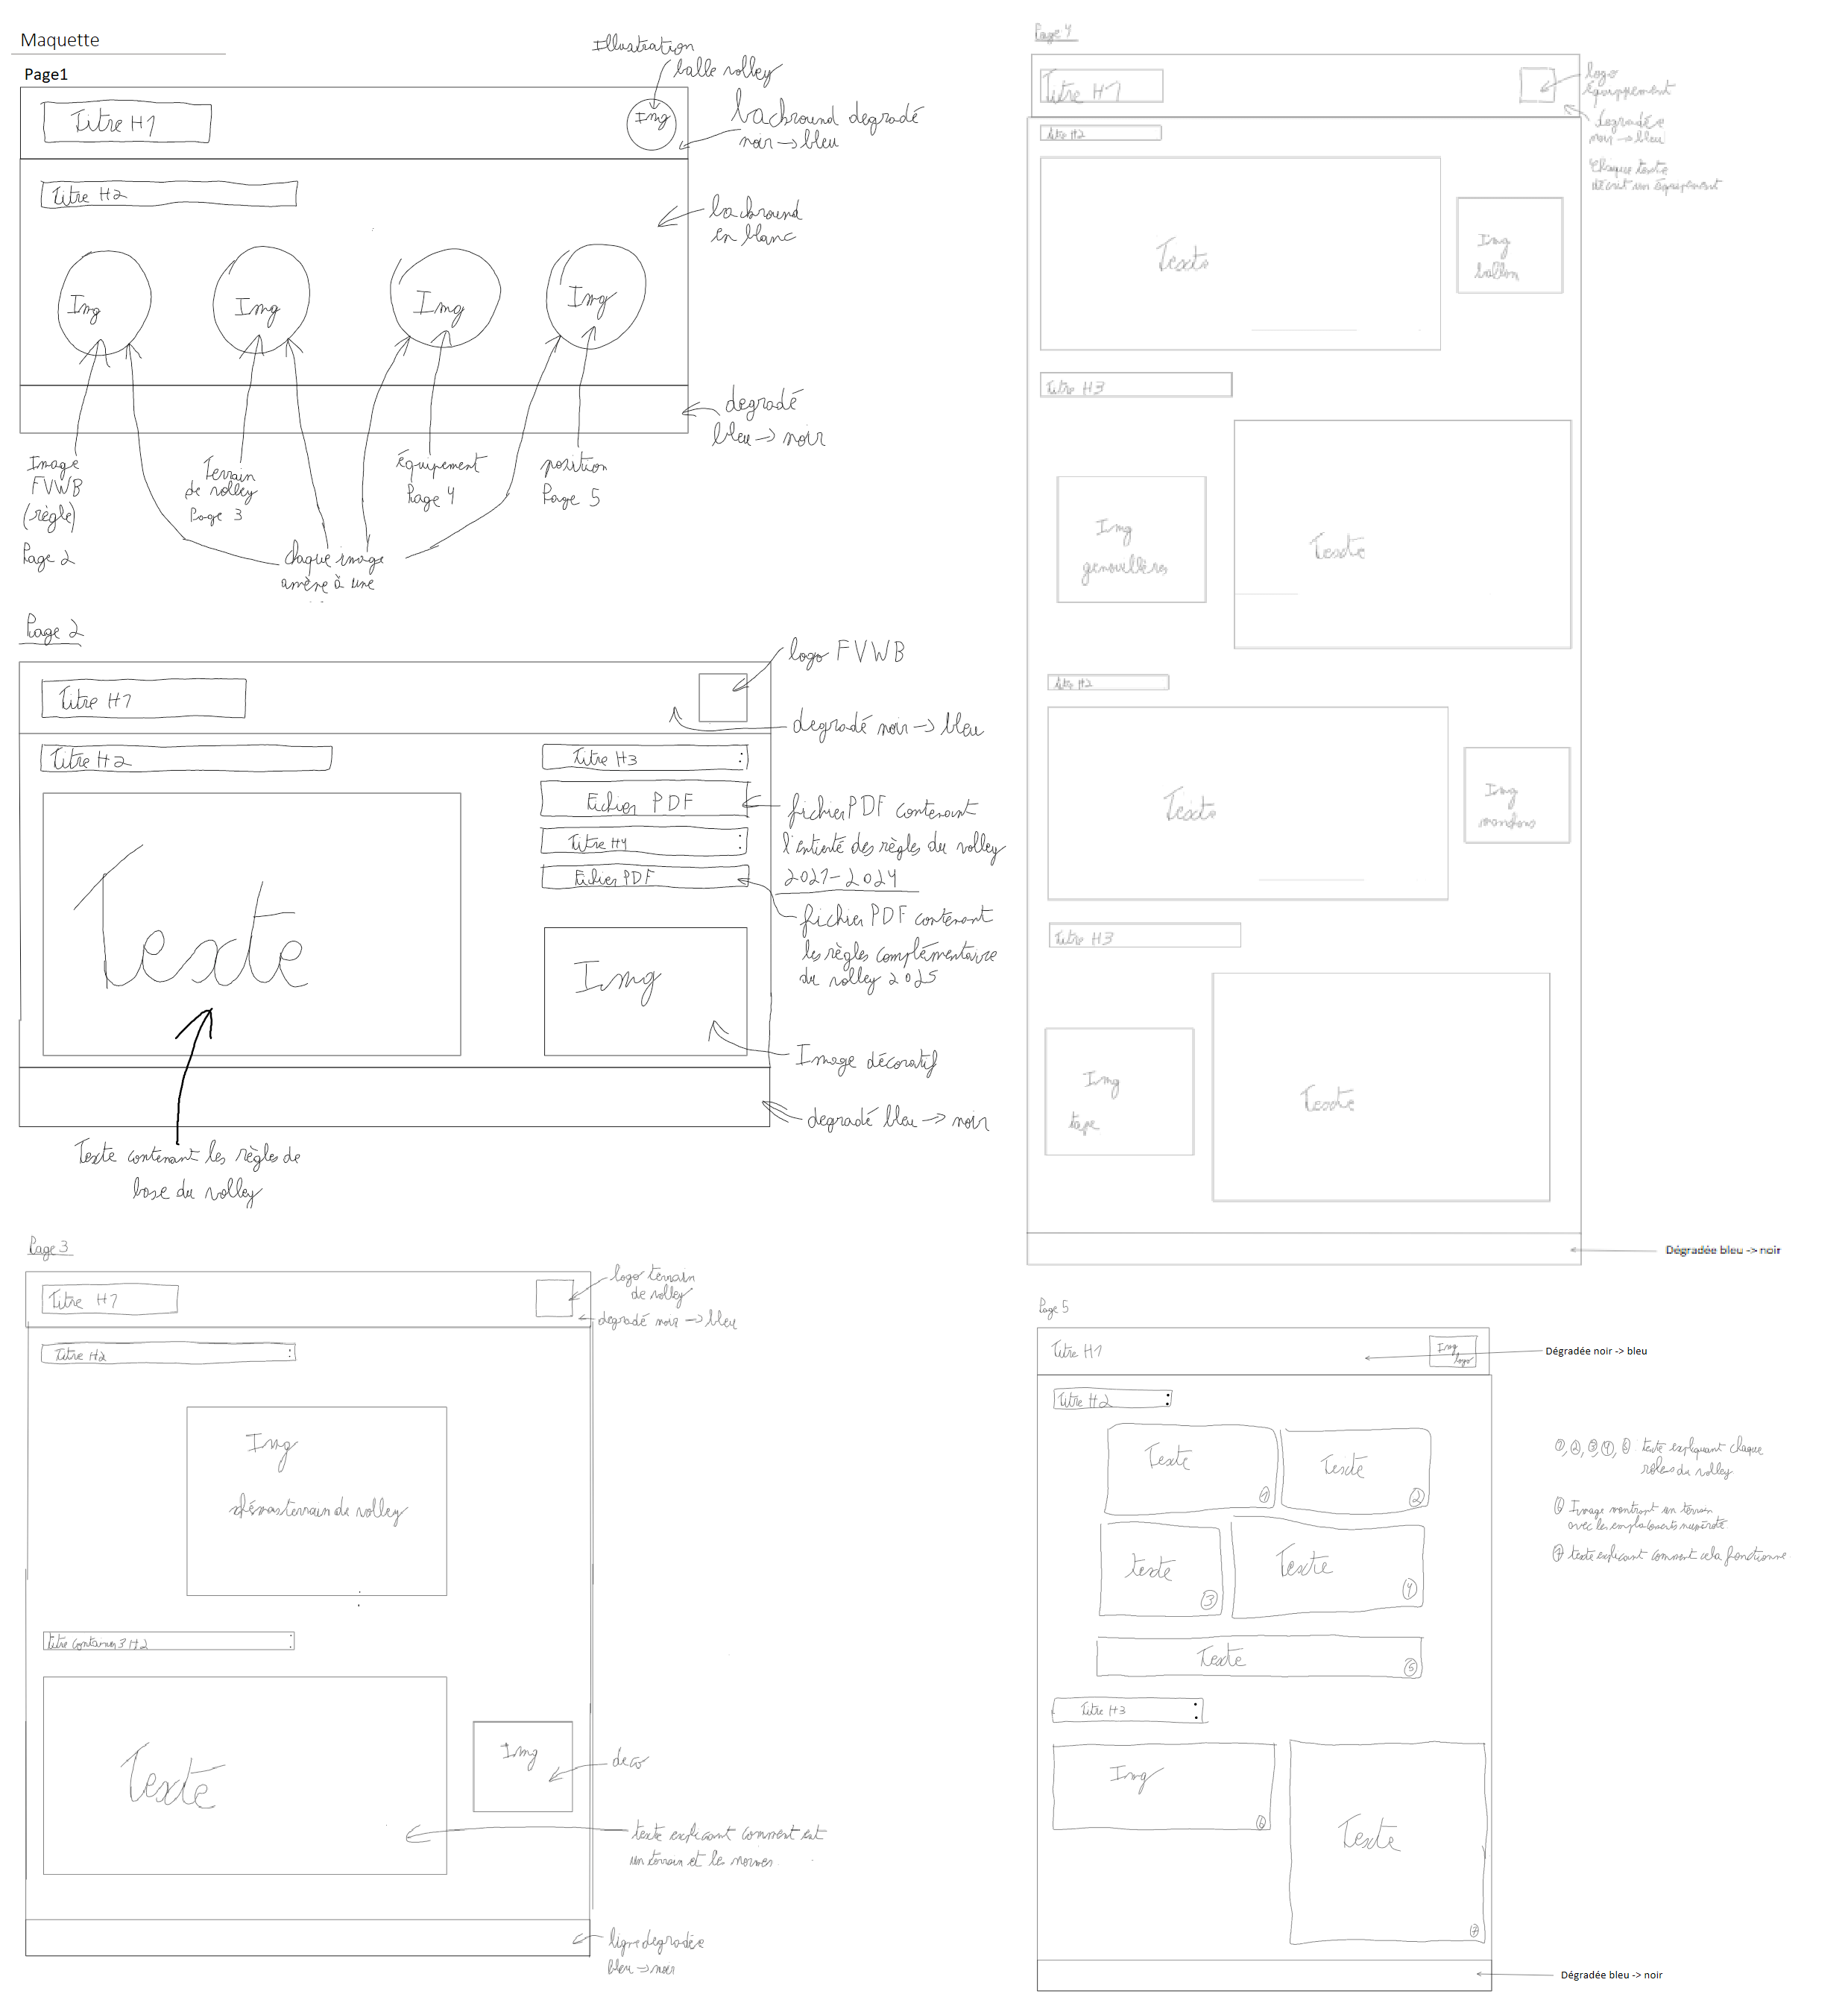 Maquette
Page1
Titre H1
Img
Illustration
balle volley
bachround degradé
noir -> bleu
Titre H2
bachround
en blanc
Img
Img
Img
Img
degradé
bleu -> noir
Image
FVWB
(règle)
Page 2
Terrain
de volley
Page 3
Équipement
Page 4
position
Page 5
chaque image
amène à une
Page 2
Titre H1
logo FVWB
degradé noir -> bleu
Titre H2
Titre H3 :
Fichier PDF
Titre H4 :
Fichier PDF
fichier PDF contenant
l'entierté des règles du volley
2021-2024
fichier PDF contenant
les règles complémentaire
du volley 2025
Texte
Img
Image décoratif
degradé bleu -> noir
Texte contenant les règles de
base du volley
Page 3
Titre H1
logo terrain
de volley
degradé noir -> bleu
Titre H2 :
Img
terrain de volley
titre container 3 H2 :
Texte
Img
deco
texte explicant comment est
un terrain et les normes
ligne degradée
bleu -> noir
Page 4
Titre H1
logo
équippement
degradée
noir -> bleu
Chaque texte
décrit un équipement
titre H2
Texte
Img
ballon
Titre H3
Img
genouillères
Texte
titre H2
Texte
Img
Titre H3
Img
tape
Texte
Dégradée bleu -> noir
Page 5
Titre H1
Img
logo
Dégradée noir -> bleu
Titre H2 :
Texte 1
Texte 2
texte 3
Texte 4
Texte 5
1, 2, 3, 4, 5 texte expliquant chaque
rôles du volley
6 Image montrant un terrain
avec les emplacements numéroté
7 texte explicant comment cela fonctionne
Titre H3 :
Img 6
Texte 7
Dégradée bleu -> noir